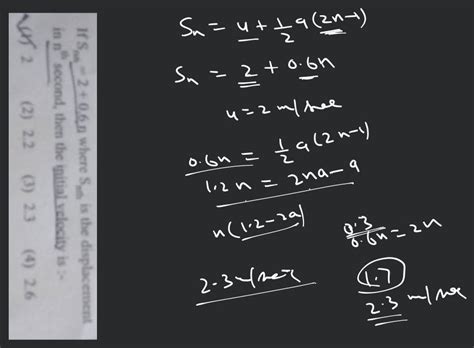 If Snth = 2 + 0.6n where Snth is the displacement
in nth second, then the initial velocity is :-
2 (2) 2.2 (3) 2.3 (4) 2.6
Sn = u + 1/2 a (2n-1)
Sn = 2 + 0.6n
u = 2 m/sec
0.6n = 1/2 a (2n-1)
1.2n = 2na - a
n(1.2-2a)
0.3
0.6n = 2n
2.3 m/sec
1.7
2.3 m/sec